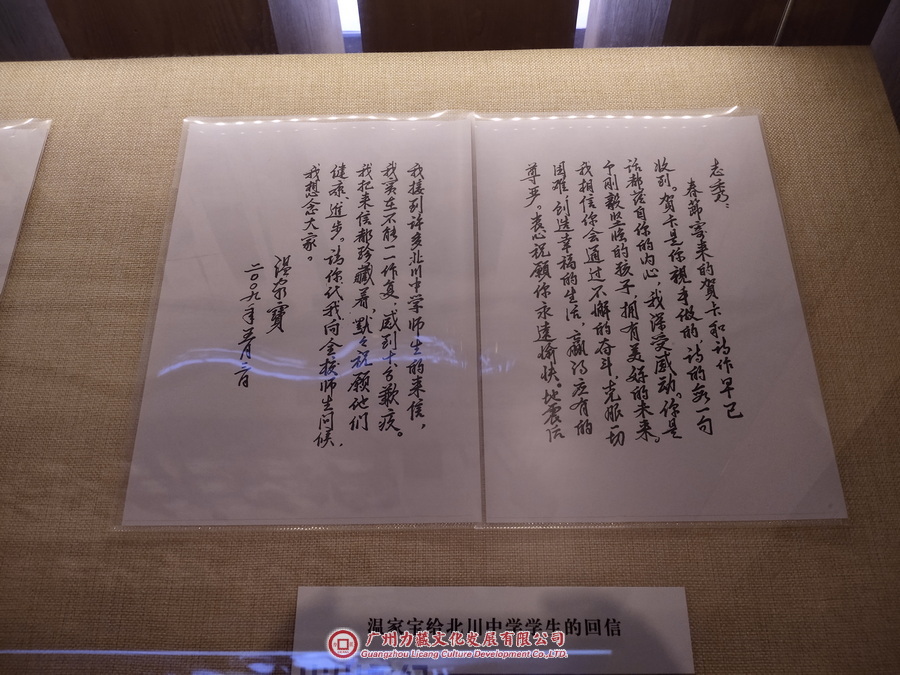 志秀：
春節寄来的賀卡和诗作早已
收到。賀卡是你親手做的，诗的每一句
话都落自你的内心，我深受感动。你是
个刚毅坚强的孩子，拥有美好的未来。
我相信你会通过不懈的奋斗，克服一切
困难，创造幸福的生活，赢得应有的
尊严。衷心祝願你永遠愉快。地震后
我接到许多北川中学师生的来信，
我实在不能一一作复，感到十分歉疚。
我把来信都珍藏着，默々祝願他们
健康、进步。请你代我向全校师生问候，
我想念大家。
温家寳
二〇〇九年三月二日
温家宝给北川中学学生的回信
广州力藏文化发展有限公司
Guangzhou Licang Culture Development Co.,LTD.